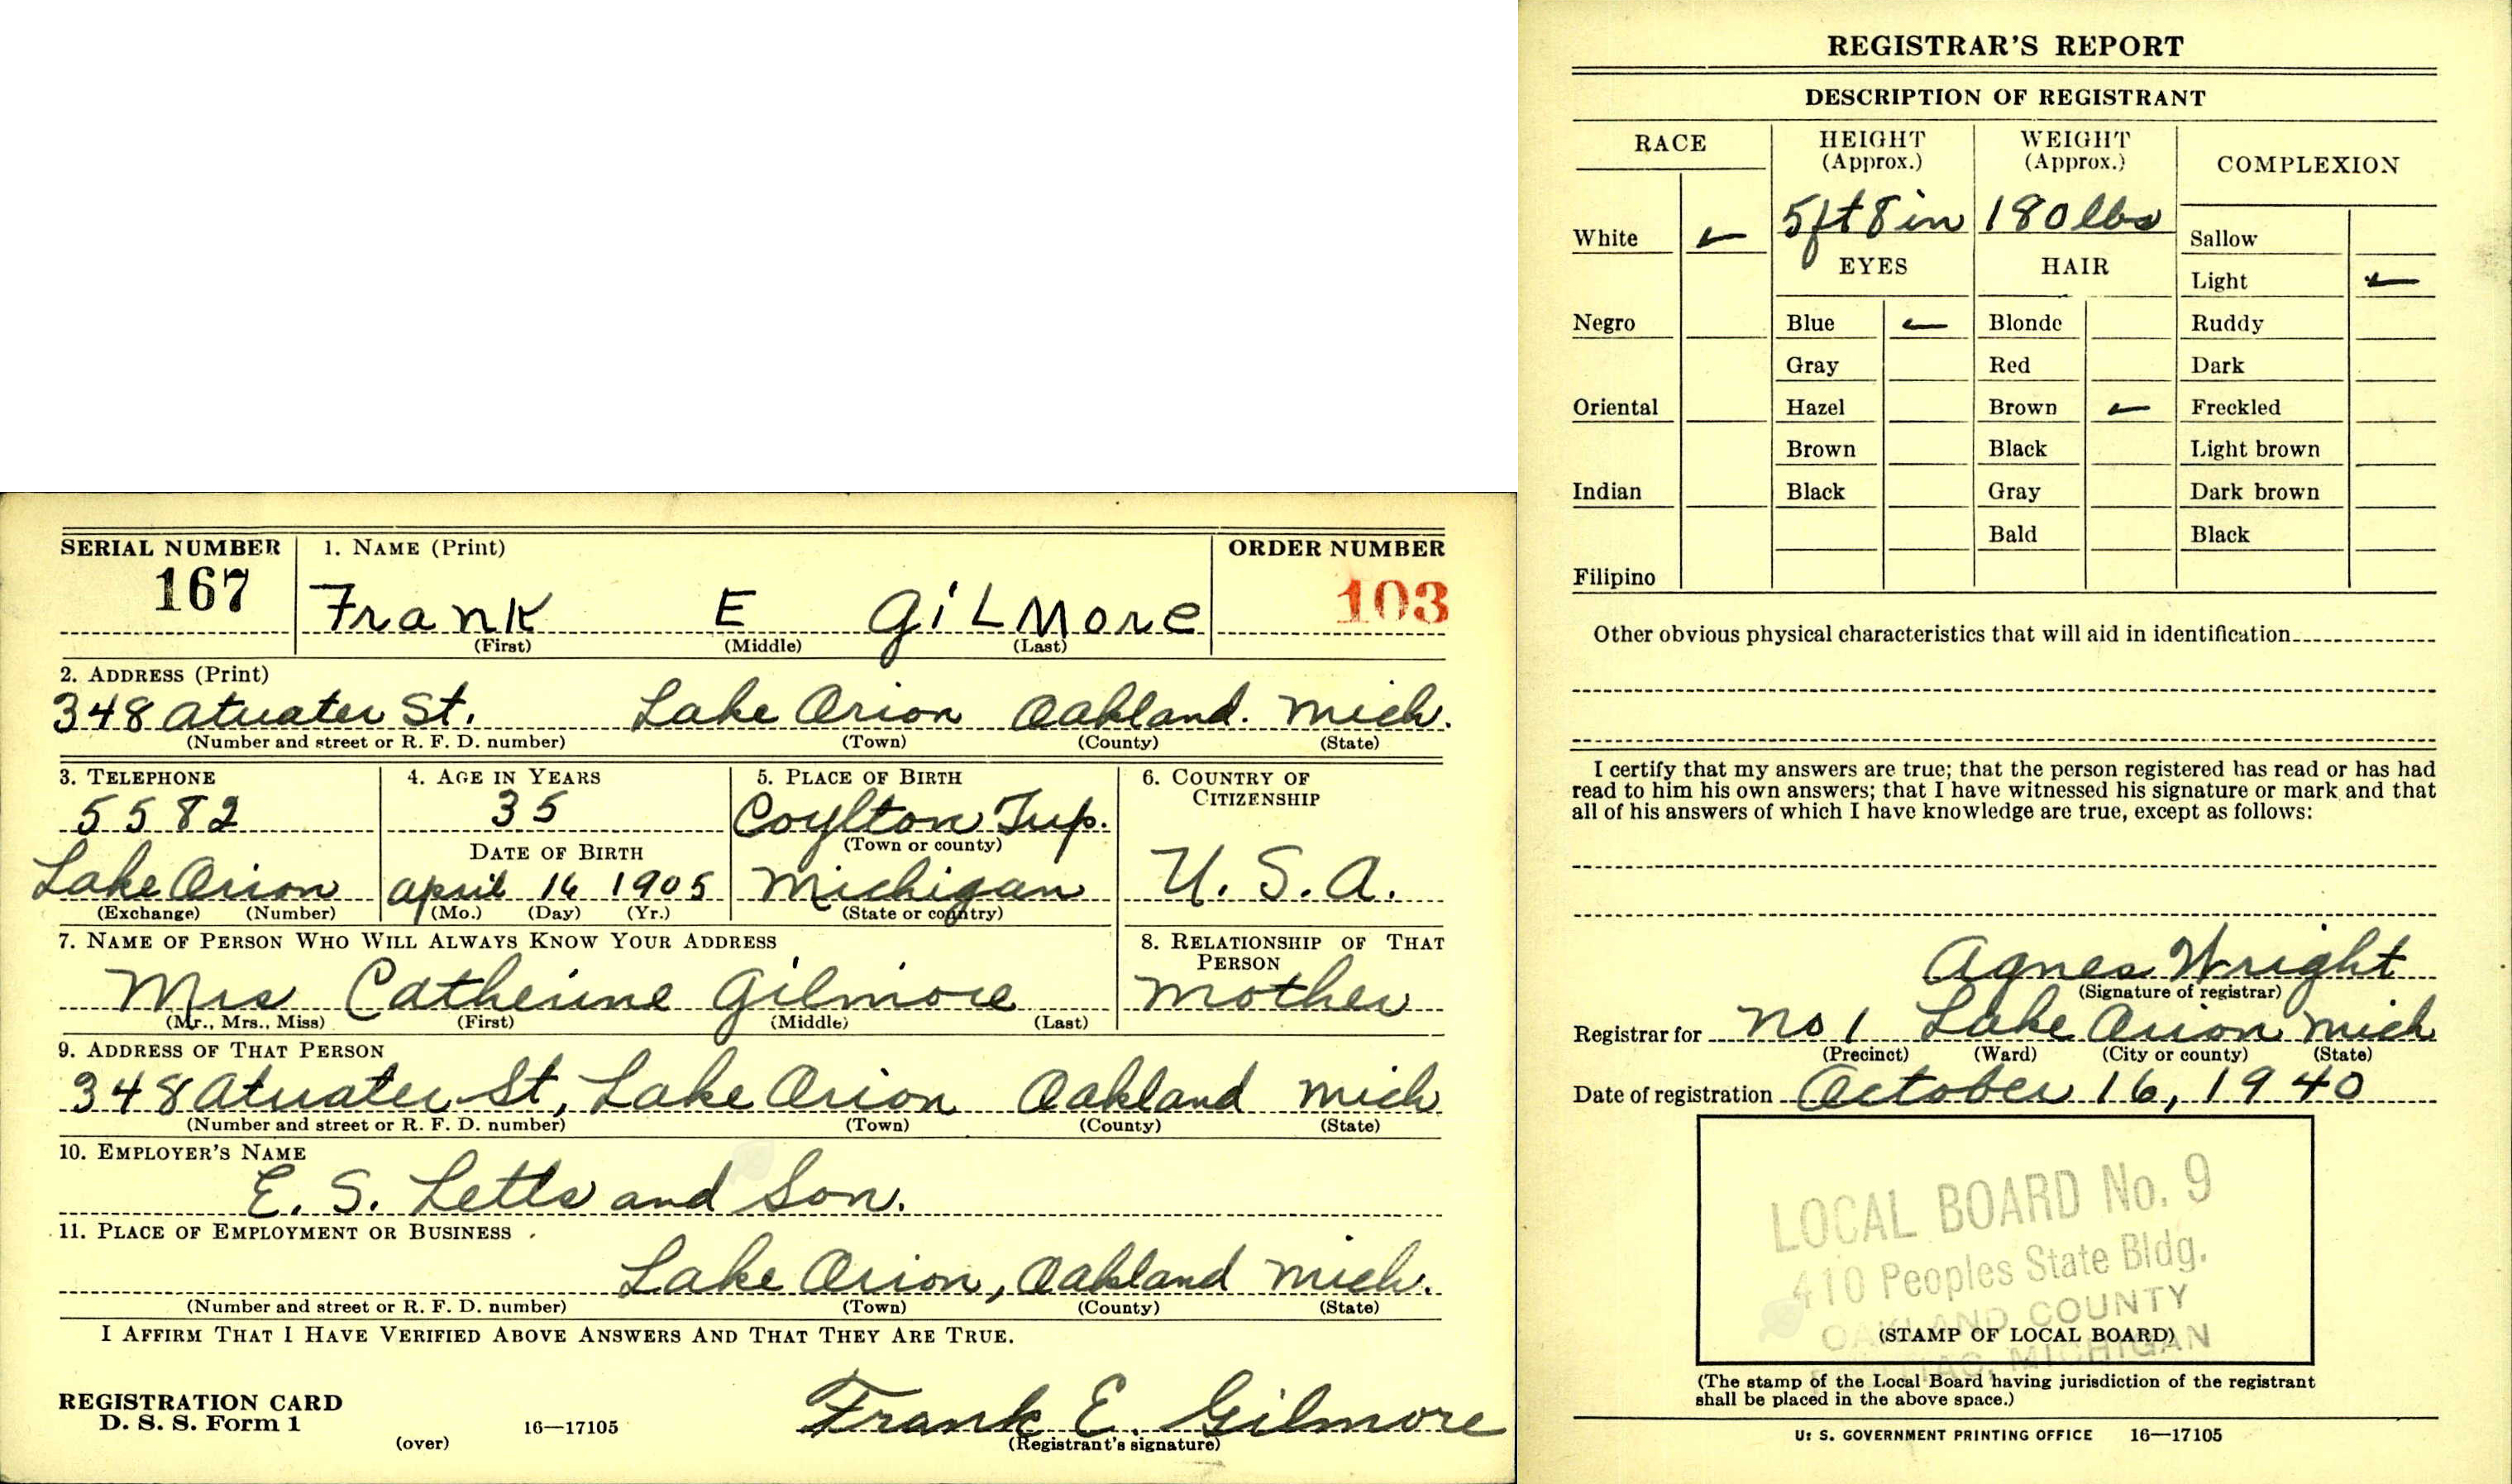 SERIAL NUMBER
1. NAME (Print)
ORDER NUMBER
167
Frank E Gilmore
103
(First) (Middle) (Last)
2. ADDRESS (Print)
348 Atwater St. Lake Orion Oakland. Mich.
(Number and street or R. F. D. number) (Town) (County) (State)
3. TELEPHONE
5582
Lake Orion
(Exchange) (Number)
4. AGE IN YEARS
35
DATE OF BIRTH
April 16 1905
(Mo.) (Day) (Yr.)
5. PLACE OF BIRTH
Coylton Twp.
(Town or county)
Michigan
(State or country)
6. COUNTRY OF
CITIZENSHIP
U. S. A.
7. NAME OF PERSON WHO WILL ALWAYS KNOW YOUR ADDRESS
Mrs Catherine Gilmore
(Mr., Mrs., Miss) (First) (Middle) (Last)
8. RELATIONSHIP OF THAT
PERSON
Mother
9. ADDRESS OF THAT PERSON
348 Atwater St, Lake Orion Oakland Mich
(Number and street or R. F. D. number) (Town) (County) (State)
10. EMPLOYER'S NAME
E. S. Letts and Son.
11. PLACE OF EMPLOYMENT OR BUSINESS
Lake Orion, Oakland Mich.
(Number and street or R. F. D. number) (Town) (County) (State)
I AFFIRM THAT I HAVE VERIFIED ABOVE ANSWERS AND THAT THEY ARE TRUE.
REGISTRATION CARD
D. S. S. Form 1
16—17105
(over)
Frank E. Gilmore
(Registrant's signature)
REGISTRAR'S REPORT
DESCRIPTION OF REGISTRANT
RACE
White
Negro
Oriental
Indian
Filipino
HEIGHT
(Approx.)
5ft 8in
EYES
Blue
Gray
Hazel
Brown
Black
WEIGHT
(Approx.)
180 lbs
HAIR
Blonde
Red
Brown
Black
Gray
Bald
COMPLEXION
Sallow
Light
Ruddy
Dark
Freckled
Light brown
Dark brown
Black
Other obvious physical characteristics that will aid in identification
I certify that my answers are true; that the person registered has read or has had
read to him his own answers; that I have witnessed his signature or mark and that
all of his answers of which I have knowledge are true, except as follows:
Agnes Wright
(Signature of registrar)
Registrar for No 1 Lake Orion Mich
(Precinct) (Ward) (City or county) (State)
Date of registration October 16, 1940
LOCAL BOARD No. 9
410 Peoples State Bldg.
OAKLAND COUNTY
(STAMP OF LOCAL BOARD)
PONTIAC, MICHIGAN
(The stamp of the Local Board having jurisdiction of the registrant
shall be placed in the above space.)
U. S. GOVERNMENT PRINTING OFFICE 16—17105